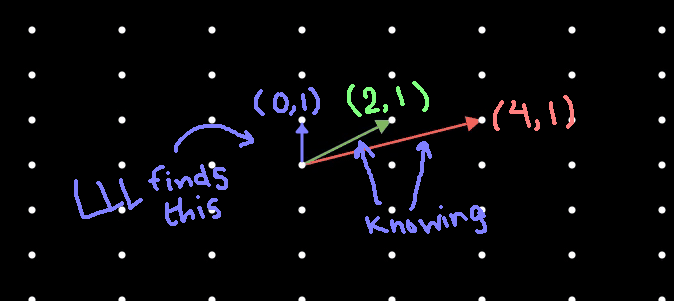 (0,1)
(2,1)
(4,1)
LLL finds
this
knowing